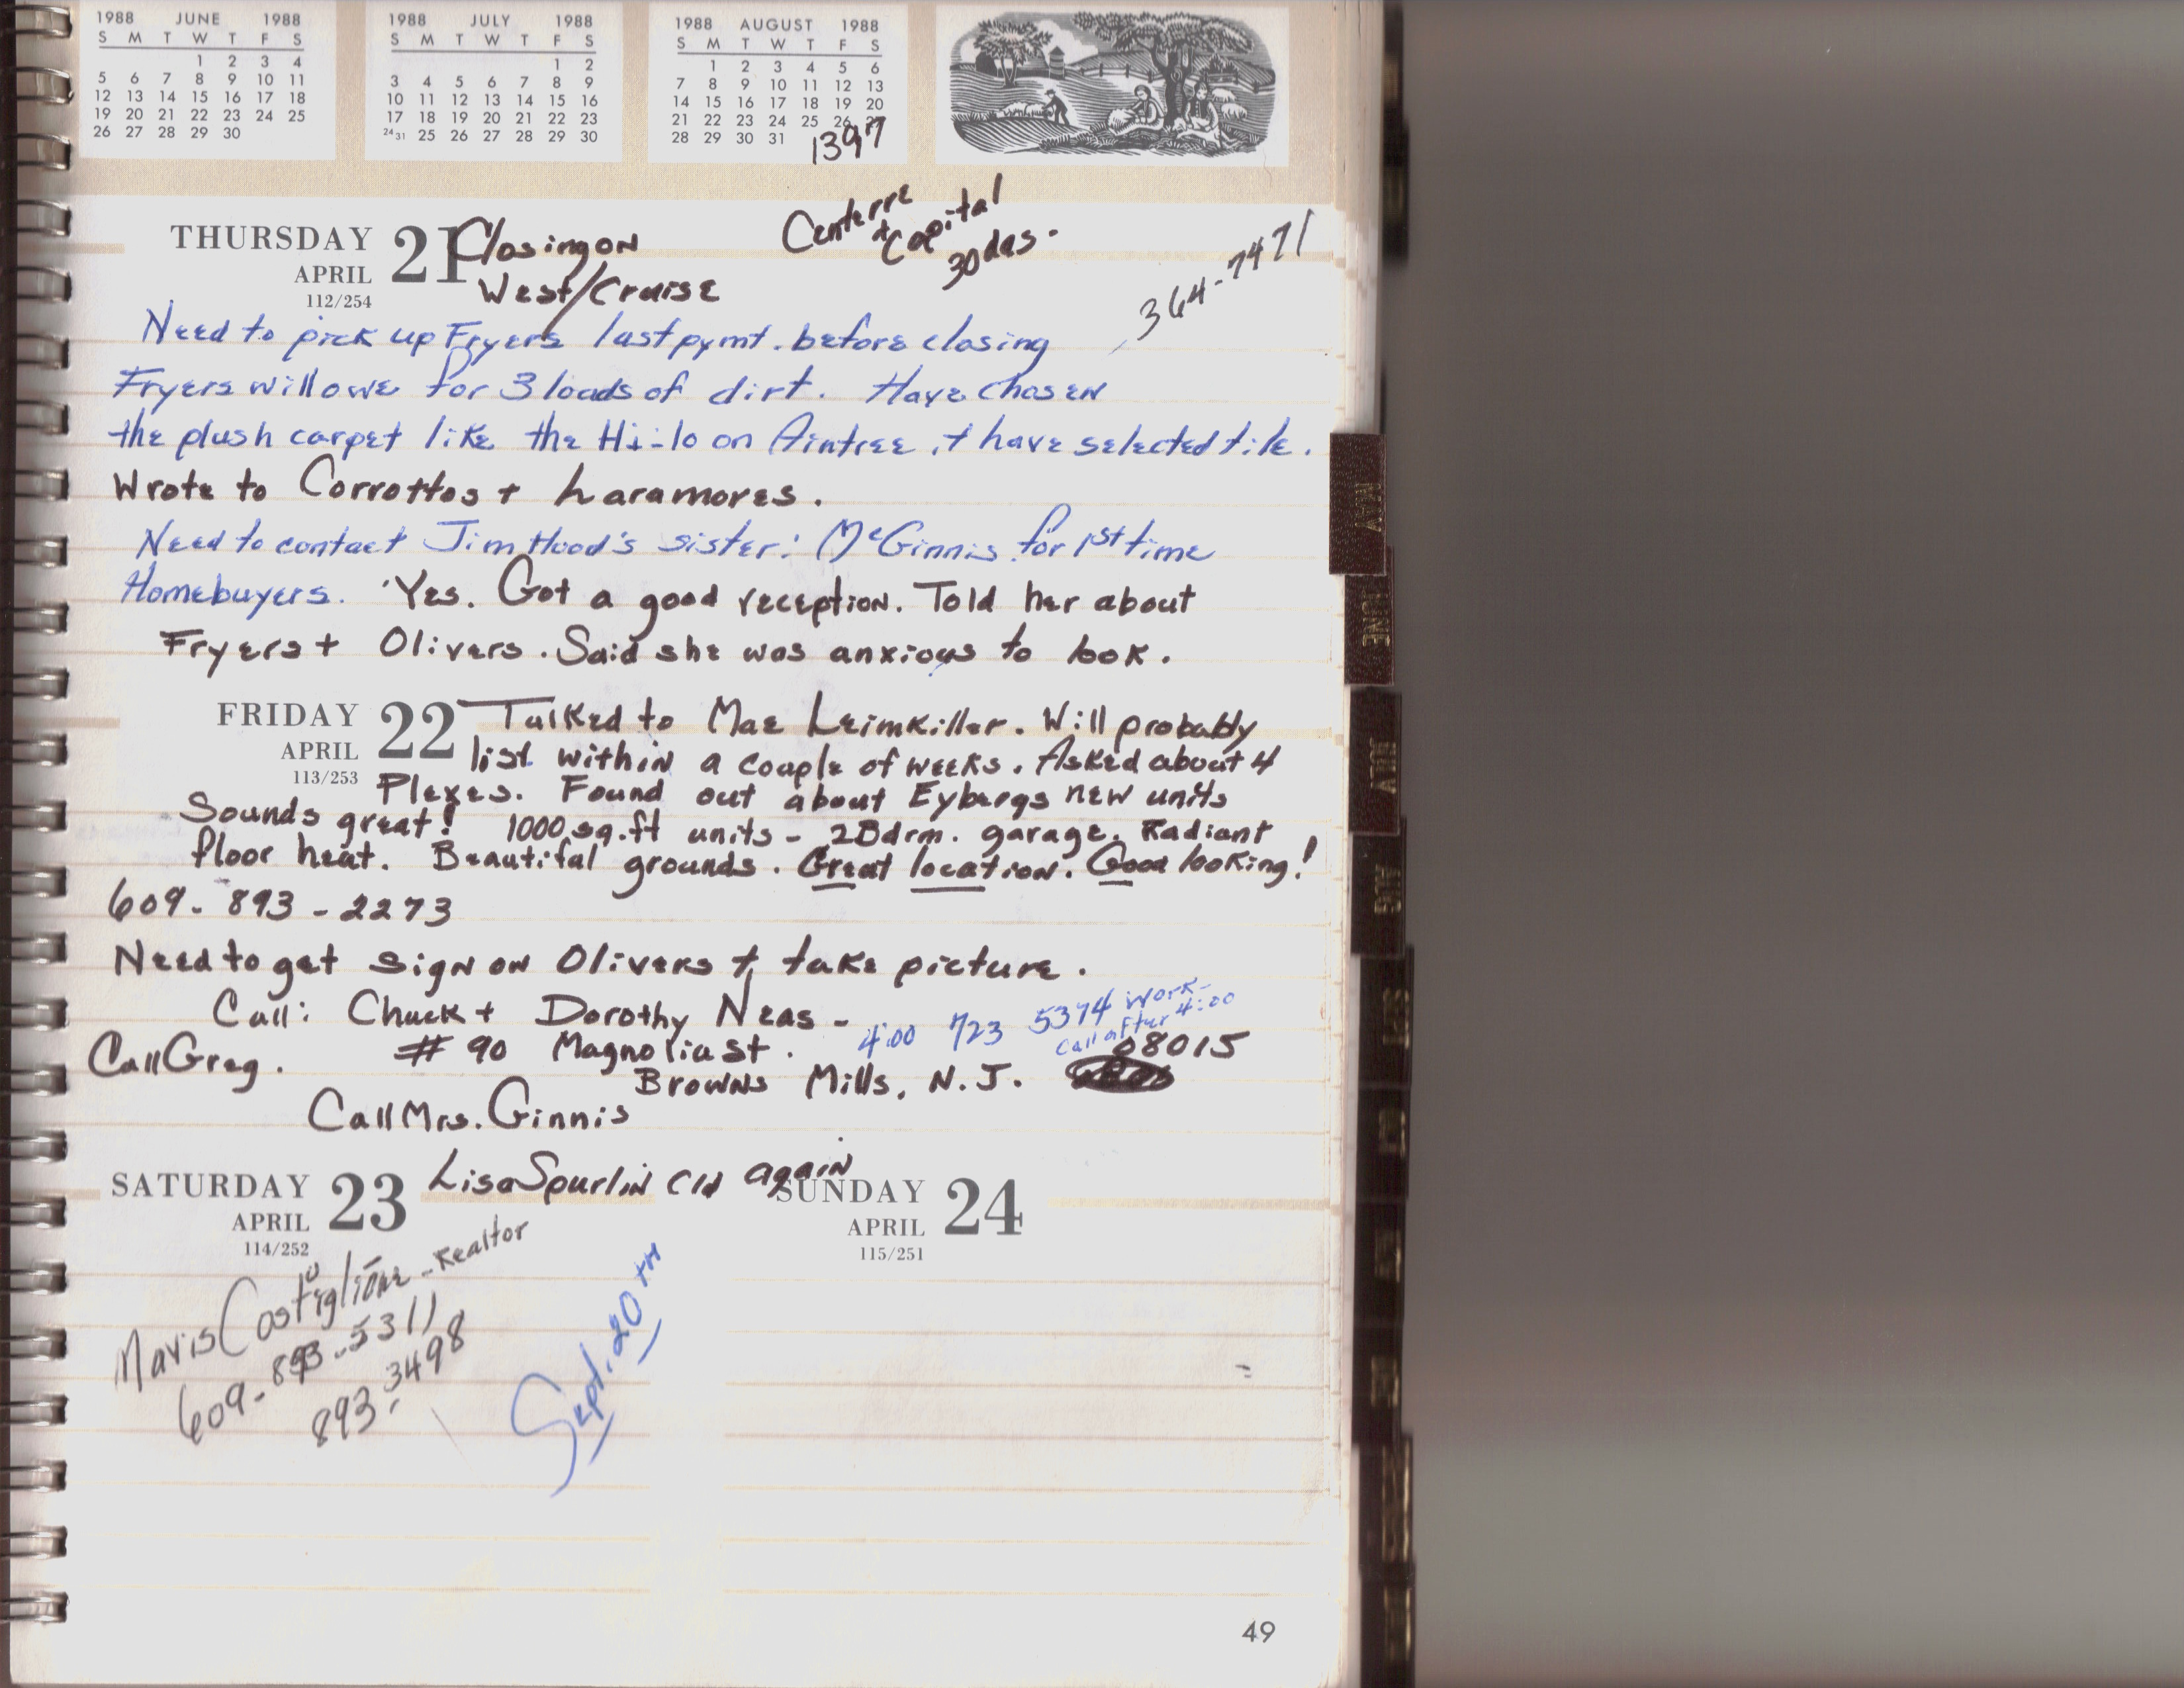 1988 JUNE 1988
S M T W T F S
1 2 3 4
5 6 7 8 9 10 11
12 13 14 15 16 17 18
19 20 21 22 23 24 25
26 27 28 29 30
1988 JULY 1988
S M T W T F S
1 2
3 4 5 6 7 8 9
10 11 12 13 14 15 16
17 18 19 20 21 22 23
24 31 25 26 27 28 29 30
1988 AUGUST 1988
S M T W T F S
1 2 3 4 5 6
7 8 9 10 11 12 13
14 15 16 17 18 19 20
21 22 23 24 25 26 27
28 29 30 31
1397
THURSDAY 21
APRIL
112/254
Closing on
West/Cruise
Centerre
+ Capital
30 das.
364-7471
Need to pick up Fryers last pymt. before closing
Fryers will owe for 3 loads of dirt. Have chosen
the plush carpet like the Hi-lo on Aintree, + have selected tile.
Wrote to Corrottos + Laramores.
Need to contact Jim Hood's sister: McGinnis for 1st time
Homebuyers. Yes. Got a good reception. Told her about
Fryers + Olivers. Said she was anxious to look.
FRIDAY 22
APRIL
113/253
Talked to Mae Leimkiller. Will probably
list within a couple of weeks. Asked about 4
Plexes. Found out about Eybergs new units
Sounds great! 1000 sq. ft units - 2Bdrm. garage. Radiant
floor heat. Beautiful grounds. Great location. Good looking!
609-893-2273
Need to get sign on Olivers + take picture.
Call: Chuck + Dorothy Neas -
4:00 723 5374 work-
Call after 4:00
# 90 Magnolia St.
08015
Call Greg.
Browns Mills, N.J.
Call Mrs. Ginnis
SATURDAY 23
APRIL
114/252
Lisa Spurlin cld again
SUNDAY 24
APRIL
115/251
Mavis Costiglione - Realtor
609-893-5311
893-3498
Sept. 20TH
49
MAY
JUNE
JULY
AUG
SEPT
OCT